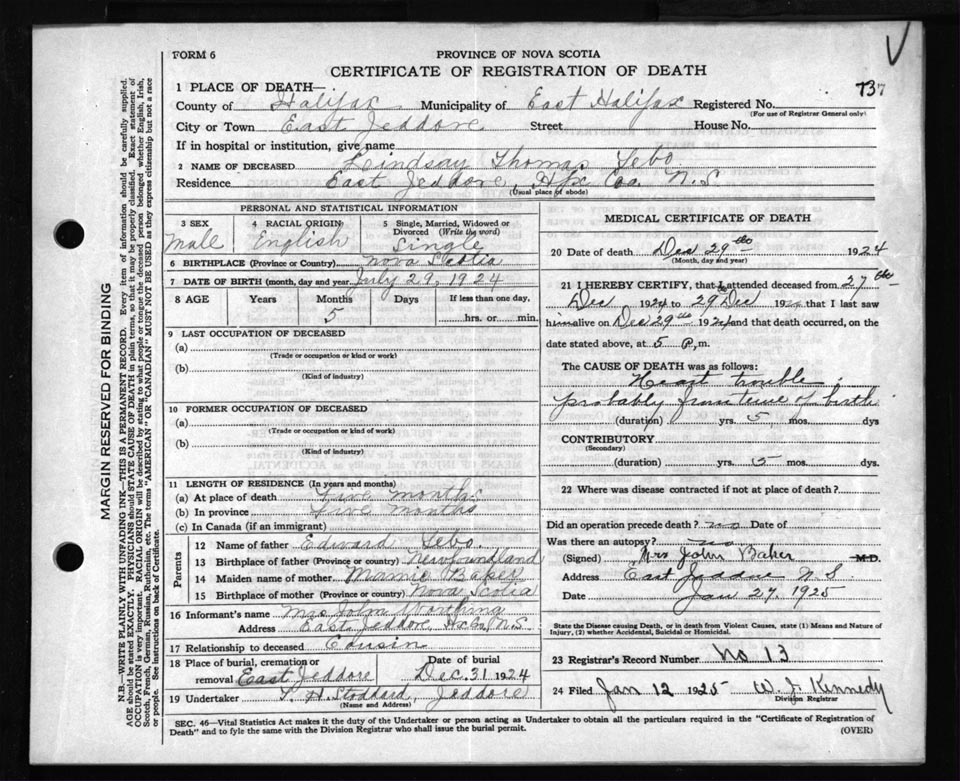 FORM 6
PROVINCE OF NOVA SCOTIA
CERTIFICATE OF REGISTRATION OF DEATH
737
1 PLACE OF DEATH—
County of Halifax Municipality of East Halifax Registered No.
(For use of Registrar General only)
City or Town East Jeddore Street House No.
If in hospital or institution, give name
2 NAME OF DECEASED Lindsay Thomas Lebo
Residence East Jeddore, Hfx Coa. N.S
(Usual place of abode)
PERSONAL AND STATISTICAL INFORMATION
3 SEX Male
4 RACIAL ORIGIN English
5 Single, Married, Widowed or Divorced (Write the word) Single
6 BIRTHPLACE (Province or Country) Nova Scotia
7 DATE OF BIRTH (month, day and year) July 29, 1924
8 AGE Years Months Days If less than one day,
5 hrs. or min.
9 LAST OCCUPATION OF DECEASED
(a)
(Trade or occupation or kind or work)
(b)
(Kind of industry)
10 FORMER OCCUPATION OF DECEASED
(a)
(Trade or occupation or kind of work)
(b)
(Kind of industry)
11 LENGTH OF RESIDENCE (In years and months)
(a) At place of death Five months
(b) In province Five months
(c) In Canada (if an immigrant)
Parents
12 Name of father Edward Lebo
13 Birthplace of father (Province or country) Newfoundland
14 Maiden name of mother Mamie Baker
15 Birthplace of mother (Province or country) Nova Scotia
16 Informant's name Mrs John
Address East Jeddore, N.S
17 Relationship to deceased Cousin
18 Place of burial, cremation or removal East Jeddore
Date of burial Dec. 31 1924
19 Undertaker T. H. Stoddard, Jeddore
(Name and Address)
MEDICAL CERTIFICATE OF DEATH
20 Date of death Dec 29th 1924
(Month, day and year)
21 I HEREBY CERTIFY, that I attended deceased from 27th
Dec 1924 to 29 Dec 192 that I last saw
him alive on Dec 29th 1924 and that death occurred, on the
date stated above, at 5 P.m.
The CAUSE OF DEATH was as follows:
Heart trouble
probably from time of birth
(duration) yrs. 5 mos. dys
CONTRIBUTORY
(Secondary)
(duration) yrs. 5 mos. dys.
22 Where was disease contracted if not at place of death?
Did an operation precede death? no Date of
Was there an autopsy? no
(Signed) Mrs John Baker M.D.
Address East Jeddore N.S.
Date Jan 27, 1925
State the Disease causing Death, or in death from Violent Causes, state (1) Means and Nature of
Injury, (2) whether Accidental, Suicidal or Homicidal.
23 Registrar's Record Number No 13
24 Filed Jan 12 1925 W. J. Kennedy
Division Registrar
SEC. 46—Vital Statistics Act makes it the duty of the Undertaker or person acting as Undertaker to obtain all the particulars required in the "Certificate of Registration of
Death" and to fyle the same with the Division Registrar who shall issue the burial permit.
(OVER)
MARGIN RESERVED FOR BINDING
N.B.—WRITE PLAINLY WITH UNFADING INK—THIS IS A PERMANENT RECORD. Every item of information should be carefully supplied.
AGE should be stated EXACTLY. PHYSICIANS should STATE CAUSE OF DEATH in plain terms, so that it may be properly classified. Exact statement of
OCCUPATION is very important. RACIAL ORIGIN will be described by stating to what people or tongue the deceased person belonged whether English, Irish,
Scotch, French, German, Russian, Ruthenian, etc. The terms "AMERICAN" OR "CANADIAN" MUST NOT BE USED as they express citizenship but not a race
or people. See instructions on back of Certificate.